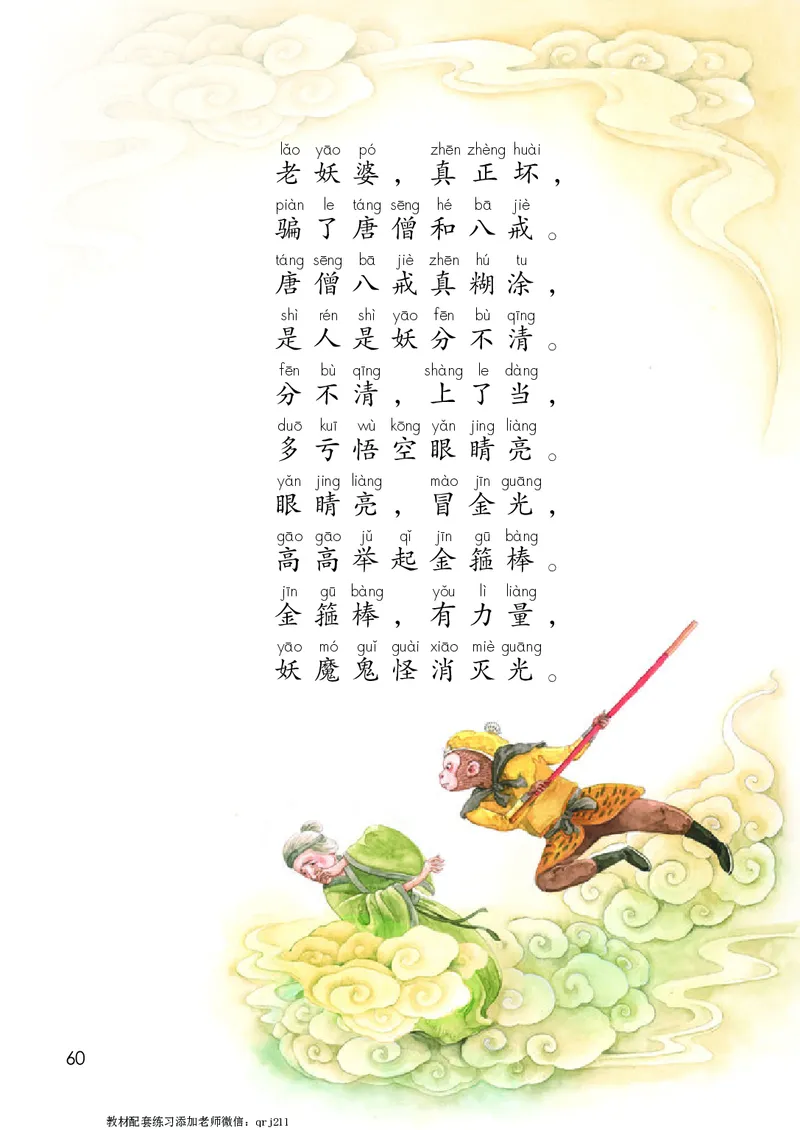 lǎo yāo pó zhēn zhèng huài
老妖婆，真正坏，
piàn le táng sēng hé bā jiè
骗了唐僧和八戒。
táng sēng bā jiè zhēn hú tu
唐僧八戒真糊涂，
shì rén shì yāo fēn bù qīng
是人是妖分不清。
fēn bù qīng shàng le dàng
分不清，上了当，
duō kuī wù kōng yǎn jing liàng
多亏悟空眼睛亮。
yǎn jing liàng mào jīn guāng
眼睛亮，冒金光，
gāo gāo jǔ qǐ jīn gū bàng
高高举起金箍棒。
jīn gū bàng yǒu lì liàng
金箍棒，有力量，
yāo mó guǐ guài xiāo miè guāng
妖魔鬼怪消灭光。
60
教材配套练习添加老师微信：qrj211